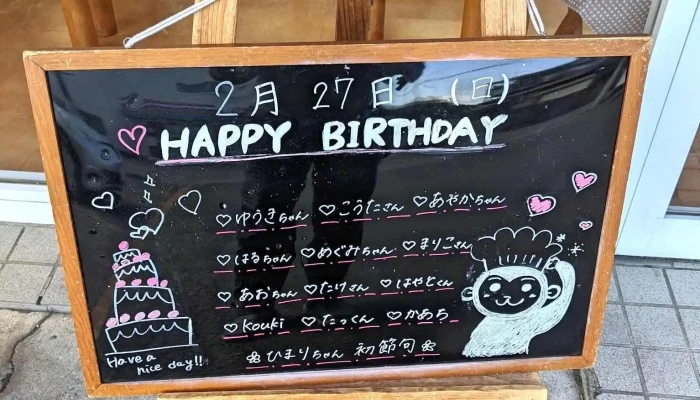 2月 27日 (日)
HAPPY BIRTHDAY
♡ゆうきちゃん ♡こうたさん ♡あやかちゃん
♡はるちゃん ♡めぐみちゃん ♡まりこさん
♡あおちゃん ♡たけさん ♡はやとくん
♡Kouki ♡たっくん ♡かあち
❀ひまりちゃん 初節句❀
Have a
nice day!!